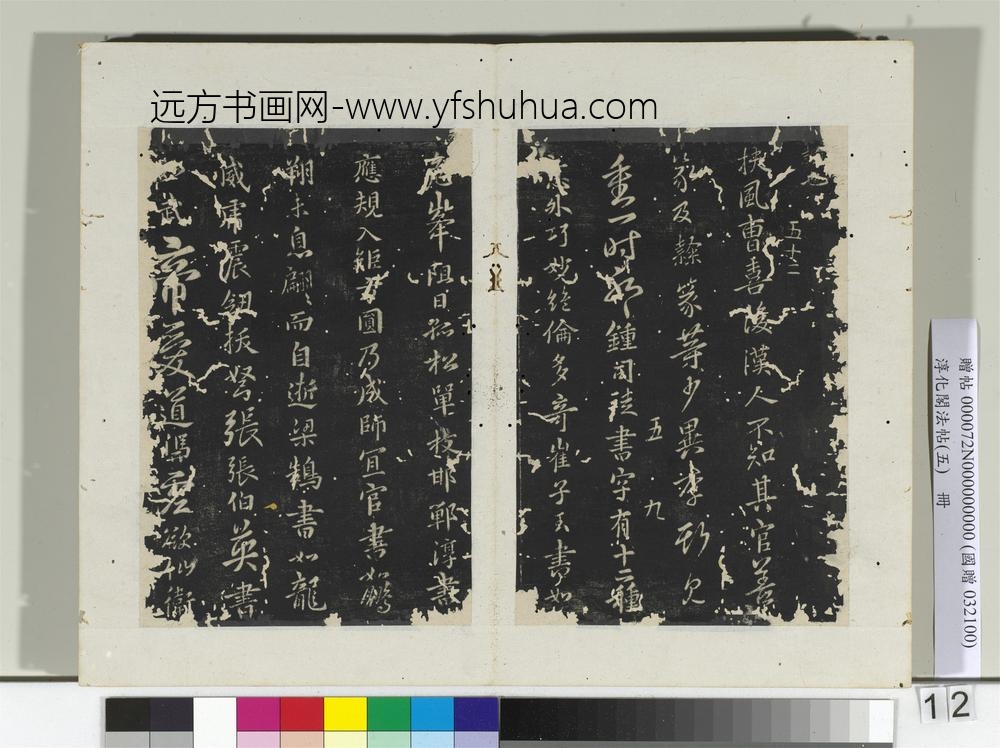 远方书画网-www.yfshuhua.com
五十二
扶風曹喜後漢人不知其官善
篆及隸篆等少異李斯見
五 九
重一時 鍾司徒書字有十二種
意外巧妙絕倫多奇崔子玉書如
危峯阻日孤松單枝邯鄲淳書
應規入矩方圓乃成師宜官書如鵬
翔未息翩〻而自逝梁鵠書如龍
威虎震劒拔弩張張伯英書
武帝愛道馮虛欲仙衛
贈帖 000072N000000000 (國贈 032100)
淳化閣法帖(五) 冊
12